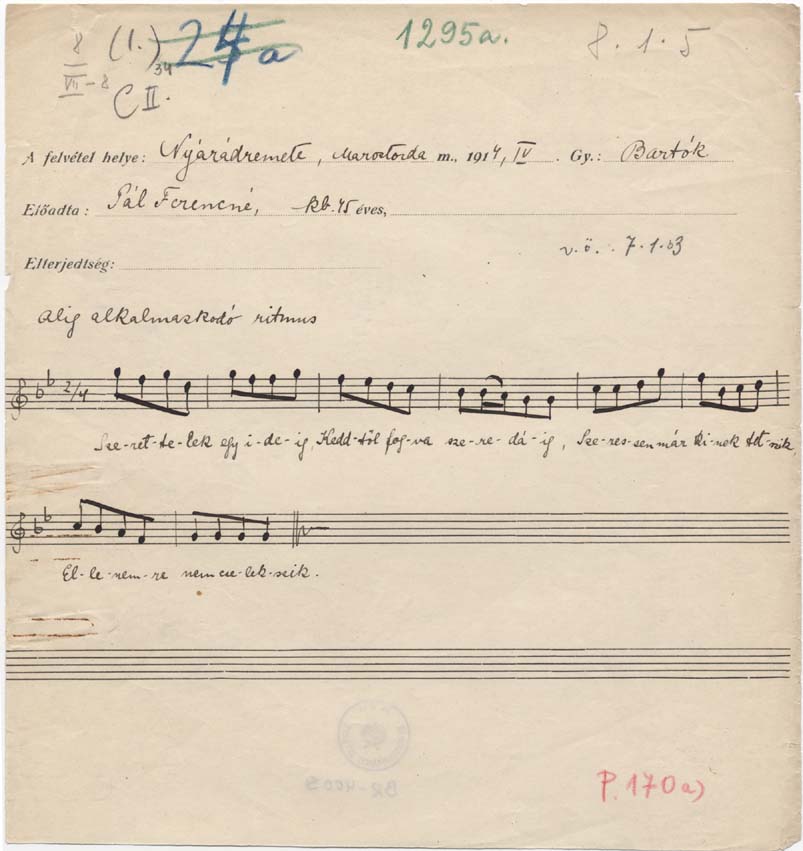 8 (1.) 24a 1295a. 8.1.5
VII-8 34
C II.
A felvétel helye: Nyárádremete, Marostorda m., 1914, IV. Gy.: Bartók
Előadta: Pál Ferencné, kb. 45 éves,
v.ö. 7.1.03
Elterjedtség:
Alig alkalmazkodó ritmus
2/4
Sze-ret-te-lek egy i-de-ig, Kedd-től fog-va sze-re-dá-ig, Sze-res-sen már ki-nek tet-szik,
El-le-nem-re nem cse-lek-szik.
P. 170a)